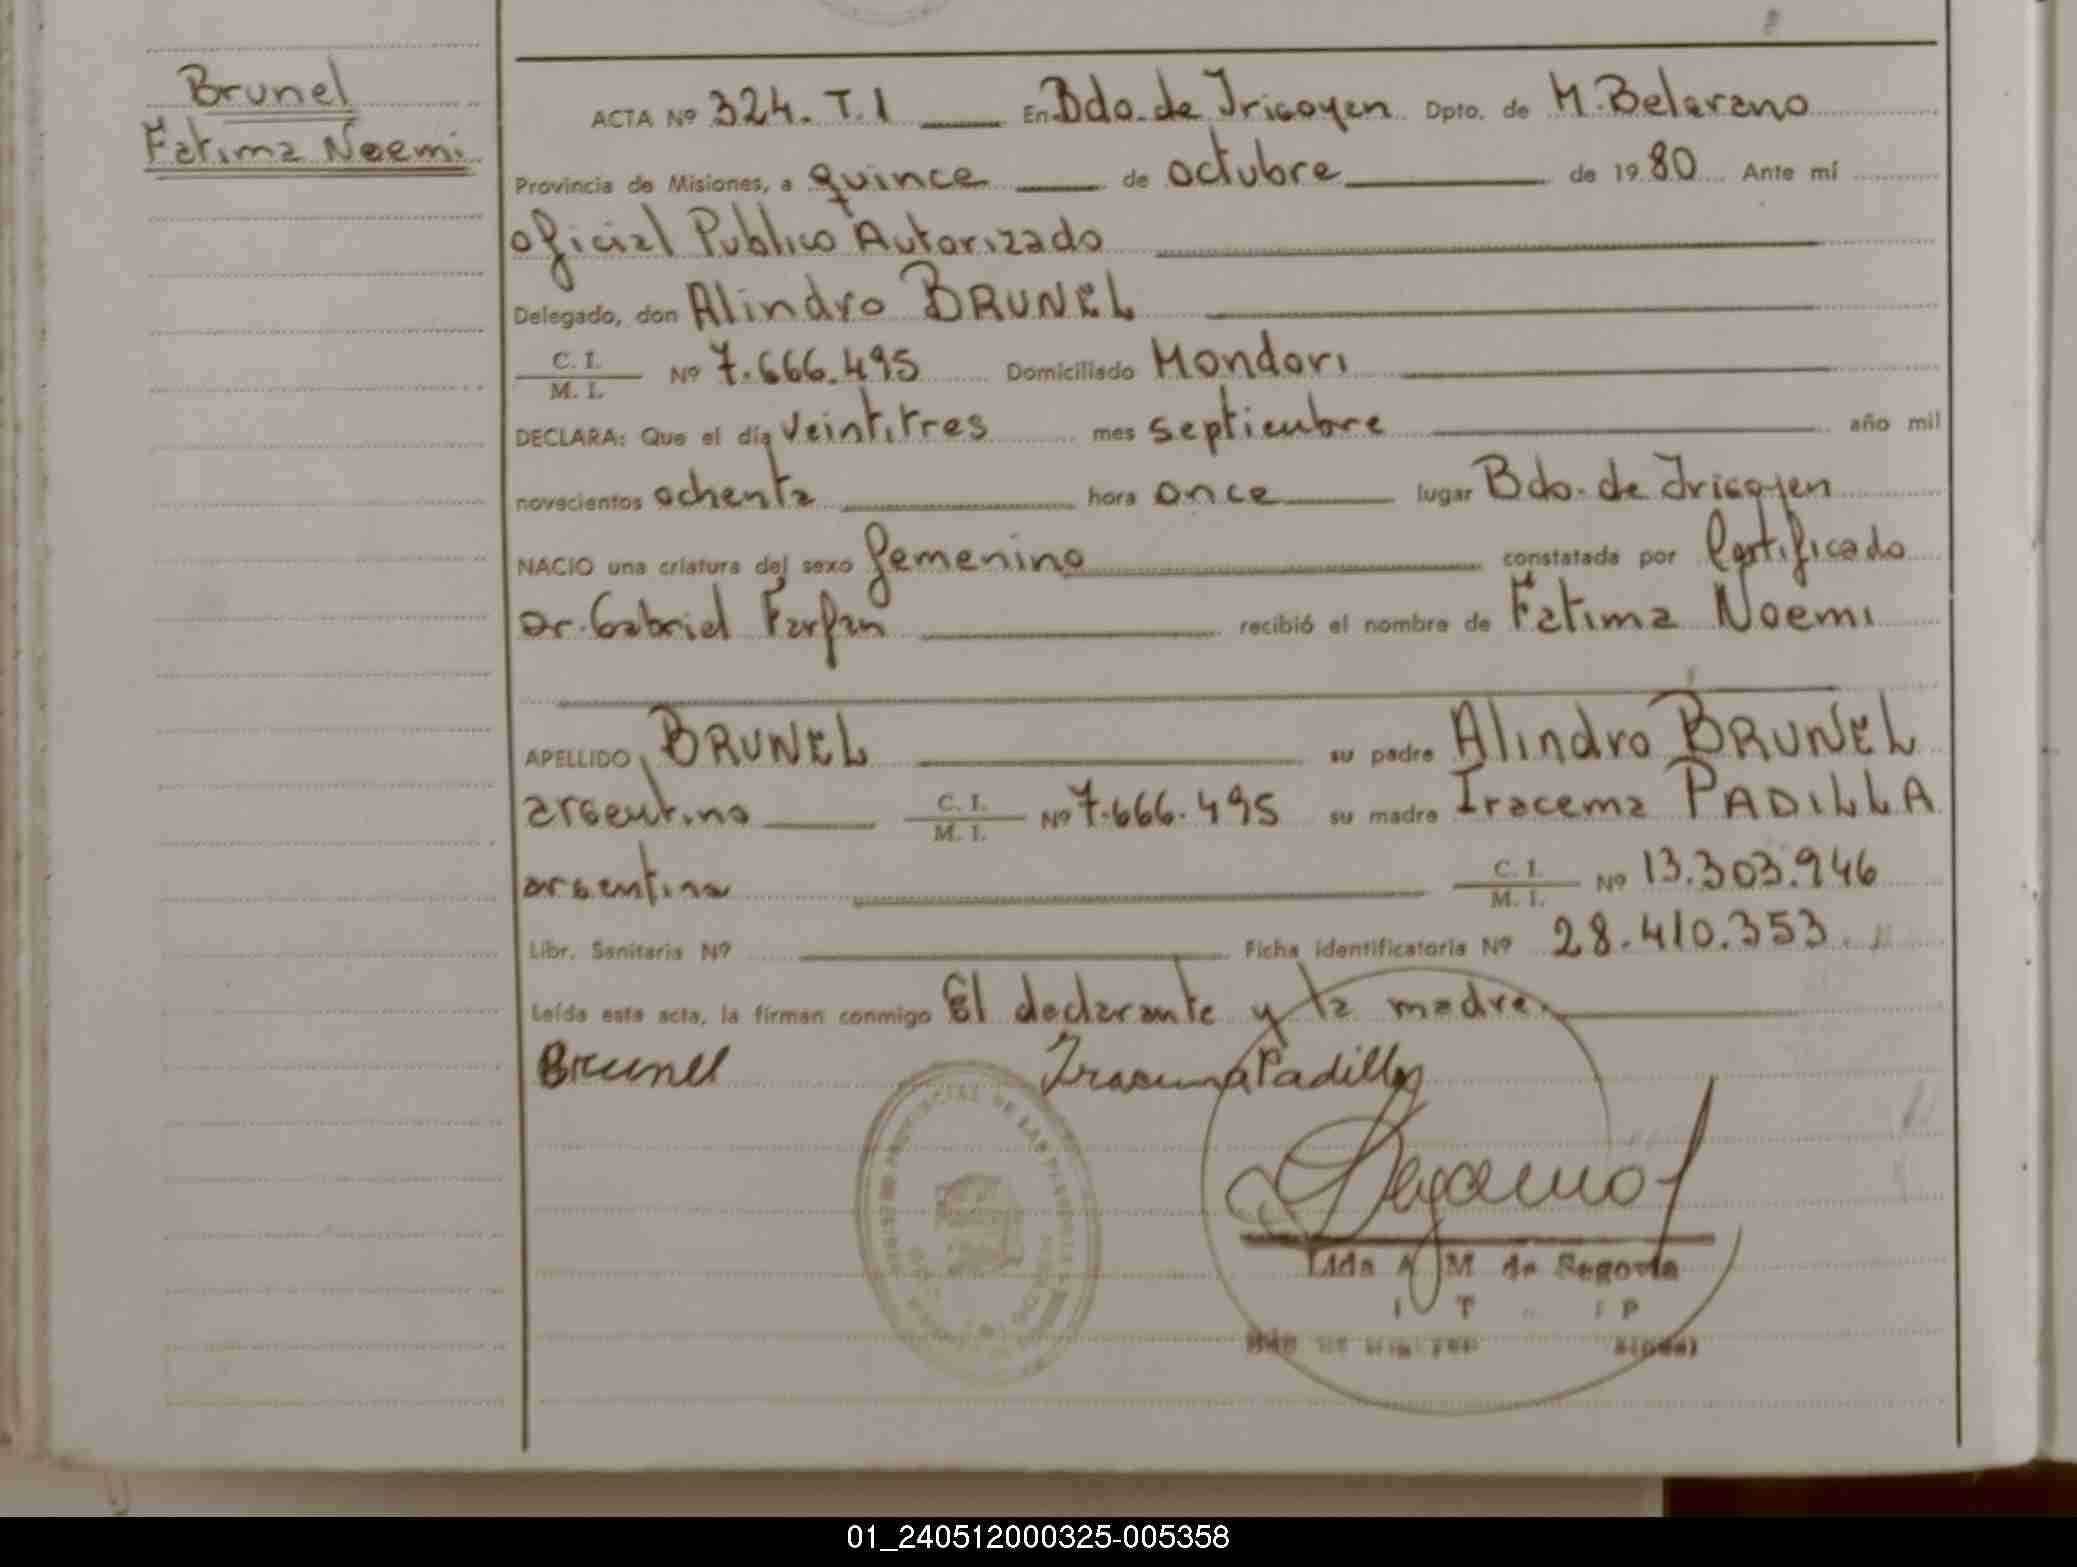 Brunel
Fatima Noemi
ACTA Nº 324. T.I En Bdo. de Irigoyen Dpto. de M. Belgrano
Provincia de Misiones, a quince de octubre de 1980 Ante mí
oficial Publico Autorizado
Delegado, don Alindro BRUNEL
C. I. / M. I. Nº 7.666.495 Domiciliado Mondori
DECLARA: Que el día veintitres mes septiembre año mil
novecientos ochenta hora once lugar Bdo. de Irigoyen
NACIO una criatura del sexo femenino constatada por Certificado
Dr. Gabriel Farfan recibió el nombre de Fatima Noemi
APELLIDO BRUNEL su padre Alindro BRUNEL
argentino C. I. / M. I. Nº 7.666.495 su madre Iracema PADILLA
argentina C. I. / M. I. Nº 13.303.946
Libr. Sanitaria Nº Ficha identificatoria Nº 28.410.353
Leída esta acta, la firman conmigo El declarante y la madre.
Brunel Iracema Padilla
Lida A M de Segovia
01_240512000325-005358